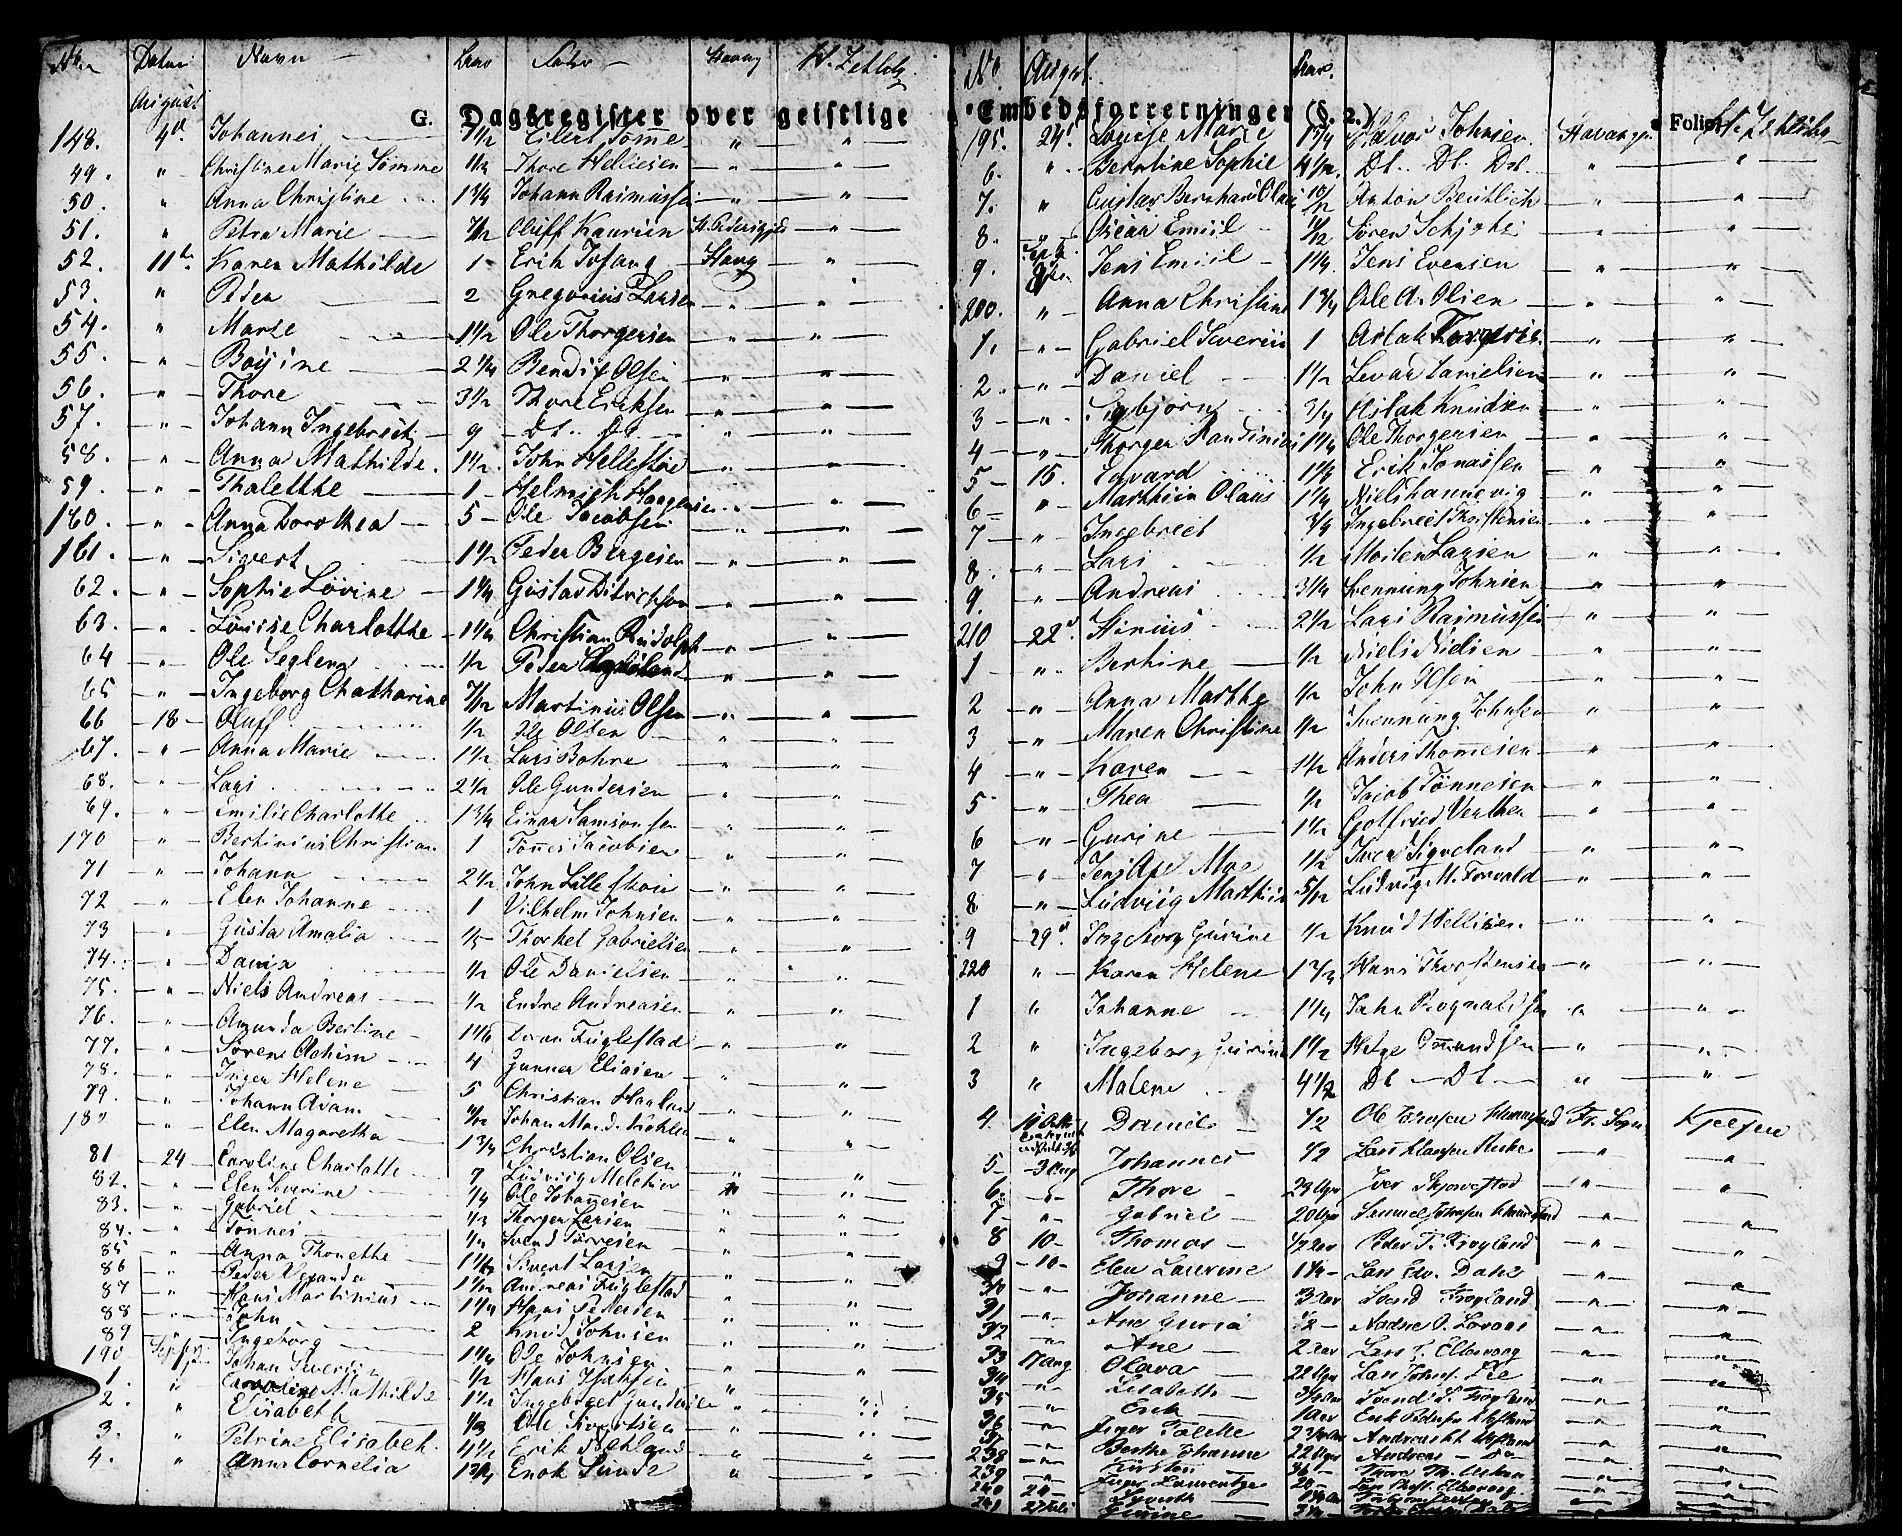 No Datum Navn Aar Fader Stavng H. Zetlitz
August
G. Dagsregister over geistlige
148. 4d Johannes 7/12 Eilert Tomme " "
49. " Christine Marie Sømme 1 1/4 Thore Helliesen " "
50. " Anna Christine 1 3/4 Johann Rasmussen " "
51. " Petra Marie 7/12 Oluff Kaurien St. Pedersgjed "
52. 11te Karen Mathilde 1 Erik Tofang Stavng "
53. " Peder 2 Gregorius Larsen " "
54. " Marie 1 1/2 Ole Thorgersen " "
55. " Bojine 2 1/4 Bendix Olsen " "
56. " Thore 3 1/2 Thore Eriksen " "
57. " Johann Ingebregt 9 Dl. Dl. " "
58. " Anna Mathilde 1 1/2 John Hellesøe " "
59. " Thaletthe 1 Helmich Haagensen " "
160. " Anna Dorothea 5 Ole Jacobsen " "
161. " Sivert 1 1/2 Peder Bergesen " "
62. " Sophie Lovine 1 1/4 Gustav Ditrichson " "
63. " Louise Charlotthe 1 1/4 Christian Rudolph " "
64 " Ole Seglem 1/2 Peder " "
65 " Ingeborg Chatharine 7/12 Martinus Olsen " "
66 18 Oluff 1/2 Ole Olsen " "
67. " Anna Marie 1 1/2 Lars Bohre " "
68. " Lars 2 1/2 Ole Gundersen " "
69. " Emilie Charlotte 1 3/4 Einar Samsonsen " "
170 " Bertinius Christian 1 Tønnes Jacobsen " "
71 " Johann 2 1/2 John Lilleskou " "
72 " Elen Johanne 1 Vilhelm Johnsen " "
73 " Gusta Amalia 1/5 Thorkel Gabrielsen " "
74. " 1/2 Ole Danielsen " "
75. " Niels Andreas 1/2 Endre Andreasen " "
76. " Amunda Bertine 1 1/6 Fuglestad " "
77. " Søren Achim 4 Gunner Eliasen " "
78. " Inger Helene 5 Christian Haaland "
79. " Johann Adam Johan Mar.d. Køhler "
180 " Elen Magaretha 1 3/4 Christian Olsen "
81 24 Caroline Charlotte 7 Ludvig Melchior " "
82. " Elen Severine 1/4 Ole Johannesen " "
83. " Gabriel 1/3 Thorger Larsen " "
84. " Tønnes 1/2 Svend Sørresen " "
85 " Anna Thonethe Sivert Larsen " "
86 " Peder Alexander 1 1/12 Andreas Fuglestad " "
87 " Hans Martinius 1 1/4 Hans Pedersen " "
88 " John 2 Knud Johnsen " "
89 " Ingeborg 1 1/4 Ole Johnsen " "
190 Johan Severin 1/2 Hans Isaksen " "
1. " Caroline Mathilde 1 1/2 Ingebreet Gundersen " "
2. " Elisabeth 1/3 Ole Sivertsen " "
3. " Petrine Elisabeh. 4 1/2 Erik " "
4. " Anna Cornelia Enok Sunde " "
No. August Aar.
Embedsforretninger (§. 2.) Folie
195. 24d Louise Marie 1 3/4 Halvor Johnsen Stavanger H. Zetlitz
6. " Berntine Sophie 4 1/12 Dl. Dl. Dsl. " "
7. " Gustav Bernhard Olaus 10/12 Anton Beutlich " "
8. " Oscar Emiil 11/12 Søren Schjøtz " "
9. Sept. Jens Emiil 1 1/4 Jens Evensen " "
200. " Anna Christine 1 3/4 Ole A. Olsen " "
1. " Gabriel Severin 1 Aslak " "
2. " Daniel 1 1/2 Levar Danielsen " "
3 " Sigbjørn 3/4 Aslak Knudsen " "
4 " Thorger Randinius 1 1/4 Ole Thorgersen " "
5 15. Edvard 1 1/4 Erik Jonassen " "
6 " Marthin Olaus 1 1/4 Niels hannevig " "
7 " Ingebreet 3/4 Ingebreet Thorstensen " "
8. " Lars 1/2 Morten Larsen " "
9. " Andreas 3 1/4 Svennung Johnsen " "
210 22d Stinius 2 1/2 Lars Rasmussen " "
1 " Bertine 1/2 Niels Nielsen " "
2 " Anna Marthe 1/2 John Olsen " "
3 " Maren Christine 1/2 Svennung Johnsen " "
4 " Karen 1 1/2 Anders Thomesen " "
5 " Thea 1/2 Jacob Tønnesen " "
6 " Gurine 1 1/2 Gotfried Verthen " "
7 " Jens Axel Moe 1/2 Iver Sigveland " "
8 " Ludvig Marthin 5/12 Ludvig M. Torvald " "
9 29d Ingeborg Gurine 1/2 Knud Hellisen " "
220 " Karen Helene 1 3/4 Hans Thorstensen " "
1 " Johanne 1 1/4 John Rognaldsen " "
2 " Ingeborg Gurine 1 1/2 Helge Omundsen " "
3 " Malene 4 1/2 Dl Dl " "
4. Daniel 1/2 Fr. Sogn Kjelsen
5 3 Aug Johannes 1/2 Lars Hansen " "
6. " Thore 29 Uger Iver Skjævestad " "
7 " Gabriel 20 Uger Samuel Johnsen " "
8 10 Thomas 1/2 aar Peder T. Frøyland " "
9 10 Elen Laurine 1 1/4 Lars Edv. Dahl " "
30 " Johanne 3 aar Svend Frøyland " "
31 " Ane Guria 1/2 Andrea O. Lovaas " "
32 " Ane 2 aar Lars T. Ellevaag " "
33 17 aug Olava 22 Uger Lars Johns. Lie " "
34 " Lisabeth Svend S. Frøyland " "
35 " Erik 1 aar Erik Pedersen " "
36 " Inger Talette Andreas " "
37 " Berthe Johanne 22 Uger Andreas " "
238 " Kirsten Thore Th. " "
239 " Inger Laurentze " "
240 24 " "
241 27 Juli Gurine " "